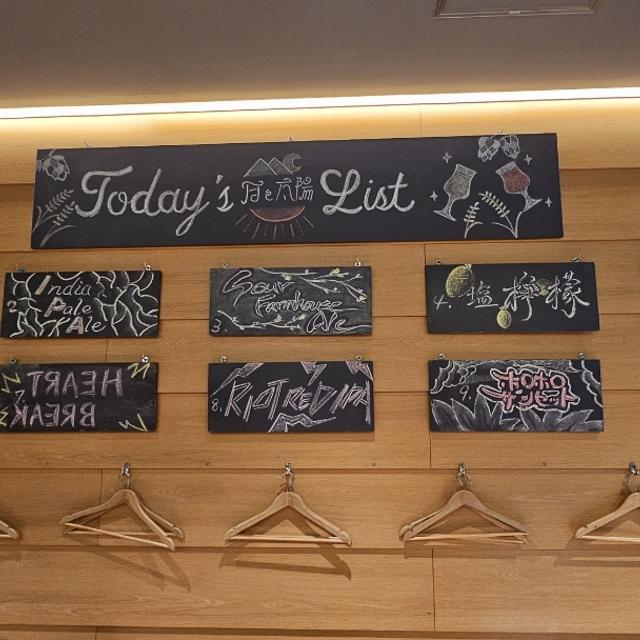 Today's 月と太陽 List
2. India
Pale
Ale
3. Sour
Farmhouse
Ale
4. 塩檸檬
7. HEART
BREAK
8. RIOT RED IPA
9. ホロホロ
サンセット